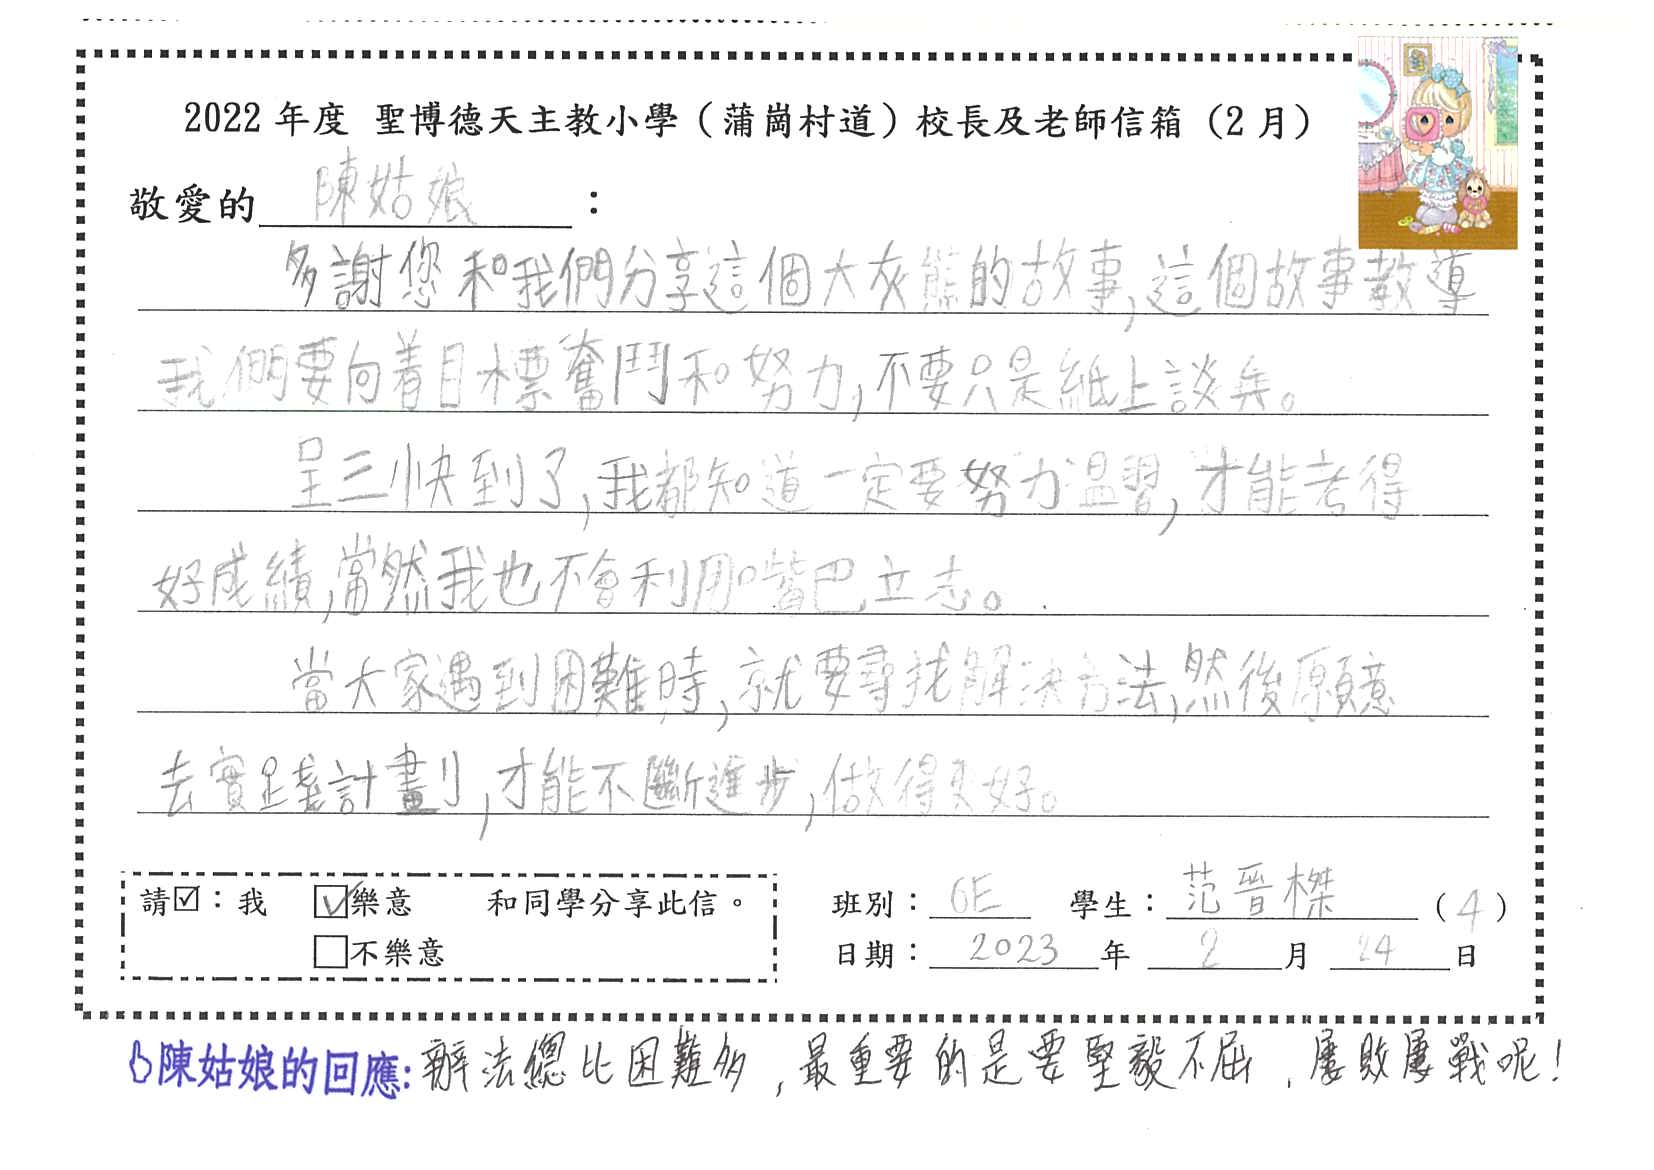 2022 年度 聖博德天主教小學（蒲崗村道）校長及老師信箱（2 月）
敬愛的 陳姑娘 ：
多謝您和我們分享這個大灰熊的故事,這個故事教導
我們要向着目標奮鬥和努力,不要只是紙上談兵。
呈三快到了,我都知道一定要努力溫習,才能考得
好成績,當然我也不會利用嘴巴立志。
當大家遇到困難時,就要尋找解決方法,然後願意
去實踐計劃,才能不斷進步,做得更好。
請☑：我 ☑樂意 和同學分享此信。
□不樂意
班別：6E 學生：范晉榤（4）
日期：2023 年 2 月 24 日
陳姑娘的回應: 辦法總比困難多,最重要的是要堅毅不屈,屢敗屢戰呢!